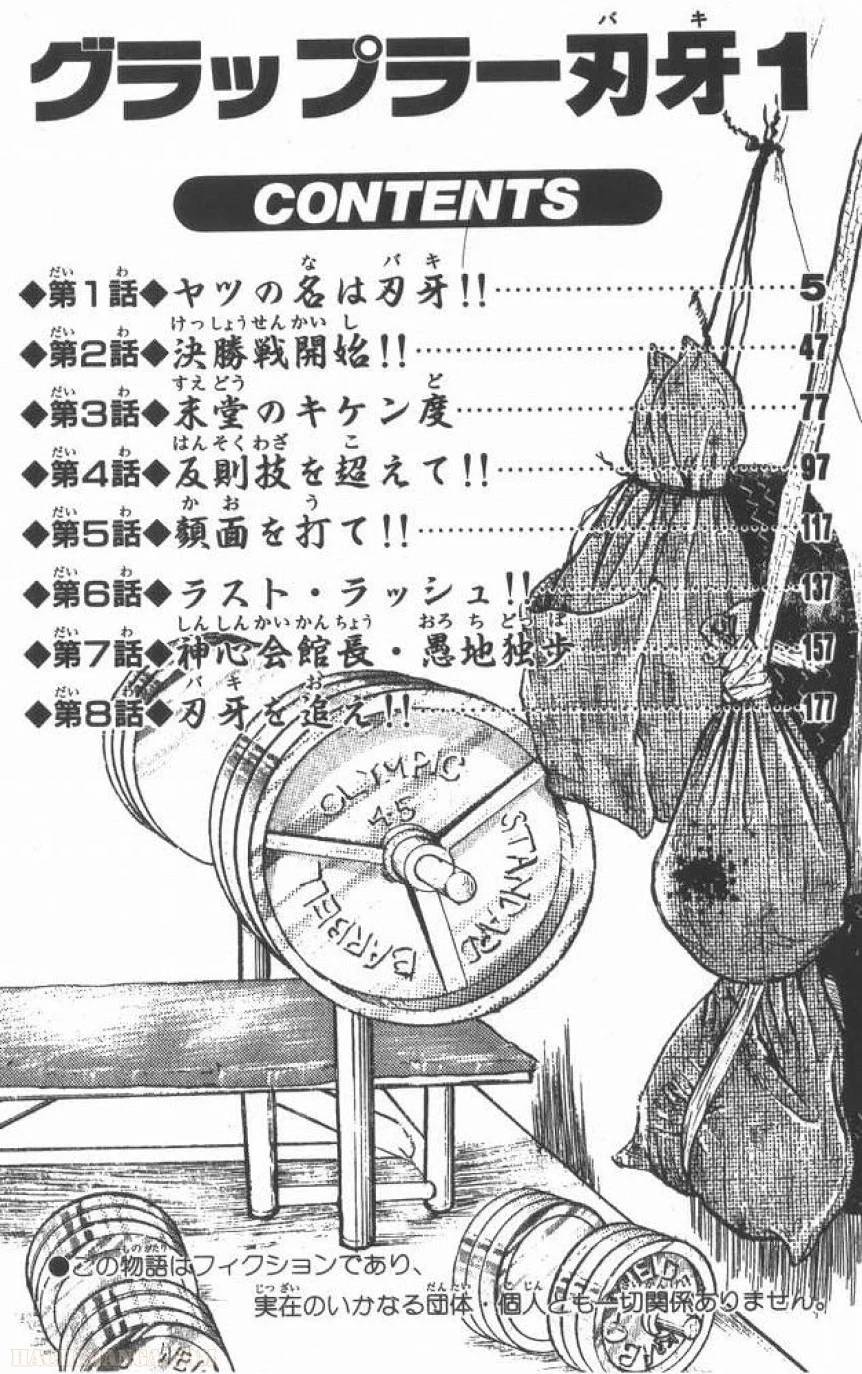 グラップラー刃牙1
CONTENTS
◆第1話◆ヤツの名は刃牙!!…5
◆第2話◆決勝戦開始!!…47
◆第3話◆末堂のキケン度…77
◆第4話◆反則技を超えて!!…97
◆第5話◆顔面を打て!!…117
◆第6話◆ラスト・ラッシュ!!…137
◆第7話◆神心会館長・愚地独歩…157
◆第8話◆刃牙を追え!!…177
OLYMPIC
45
STANDARD
BARBELL
●この物語はフィクションであり、
実在のいかなる団体・個人とも一切関係ありません。